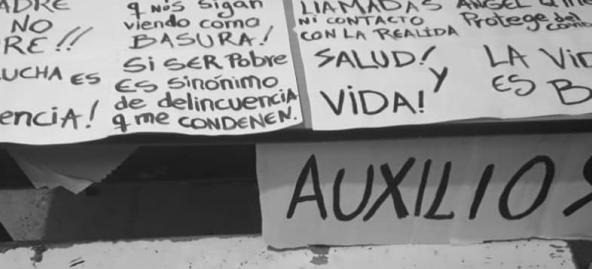 ADRE
NO
RE!!
LUCHA ES
encia!
q nos sigan
viendo como
BASURA!
Si SER Pobre
ES Sinónimo
de delincuenciA
q me CONDENEN.
LLAMADAS
NI CONTACTO
CON LA REALIDA
SALUD!
Y
ViDA!
ANGEL
Protege del
LA Vid
ES B
AUXILIOS